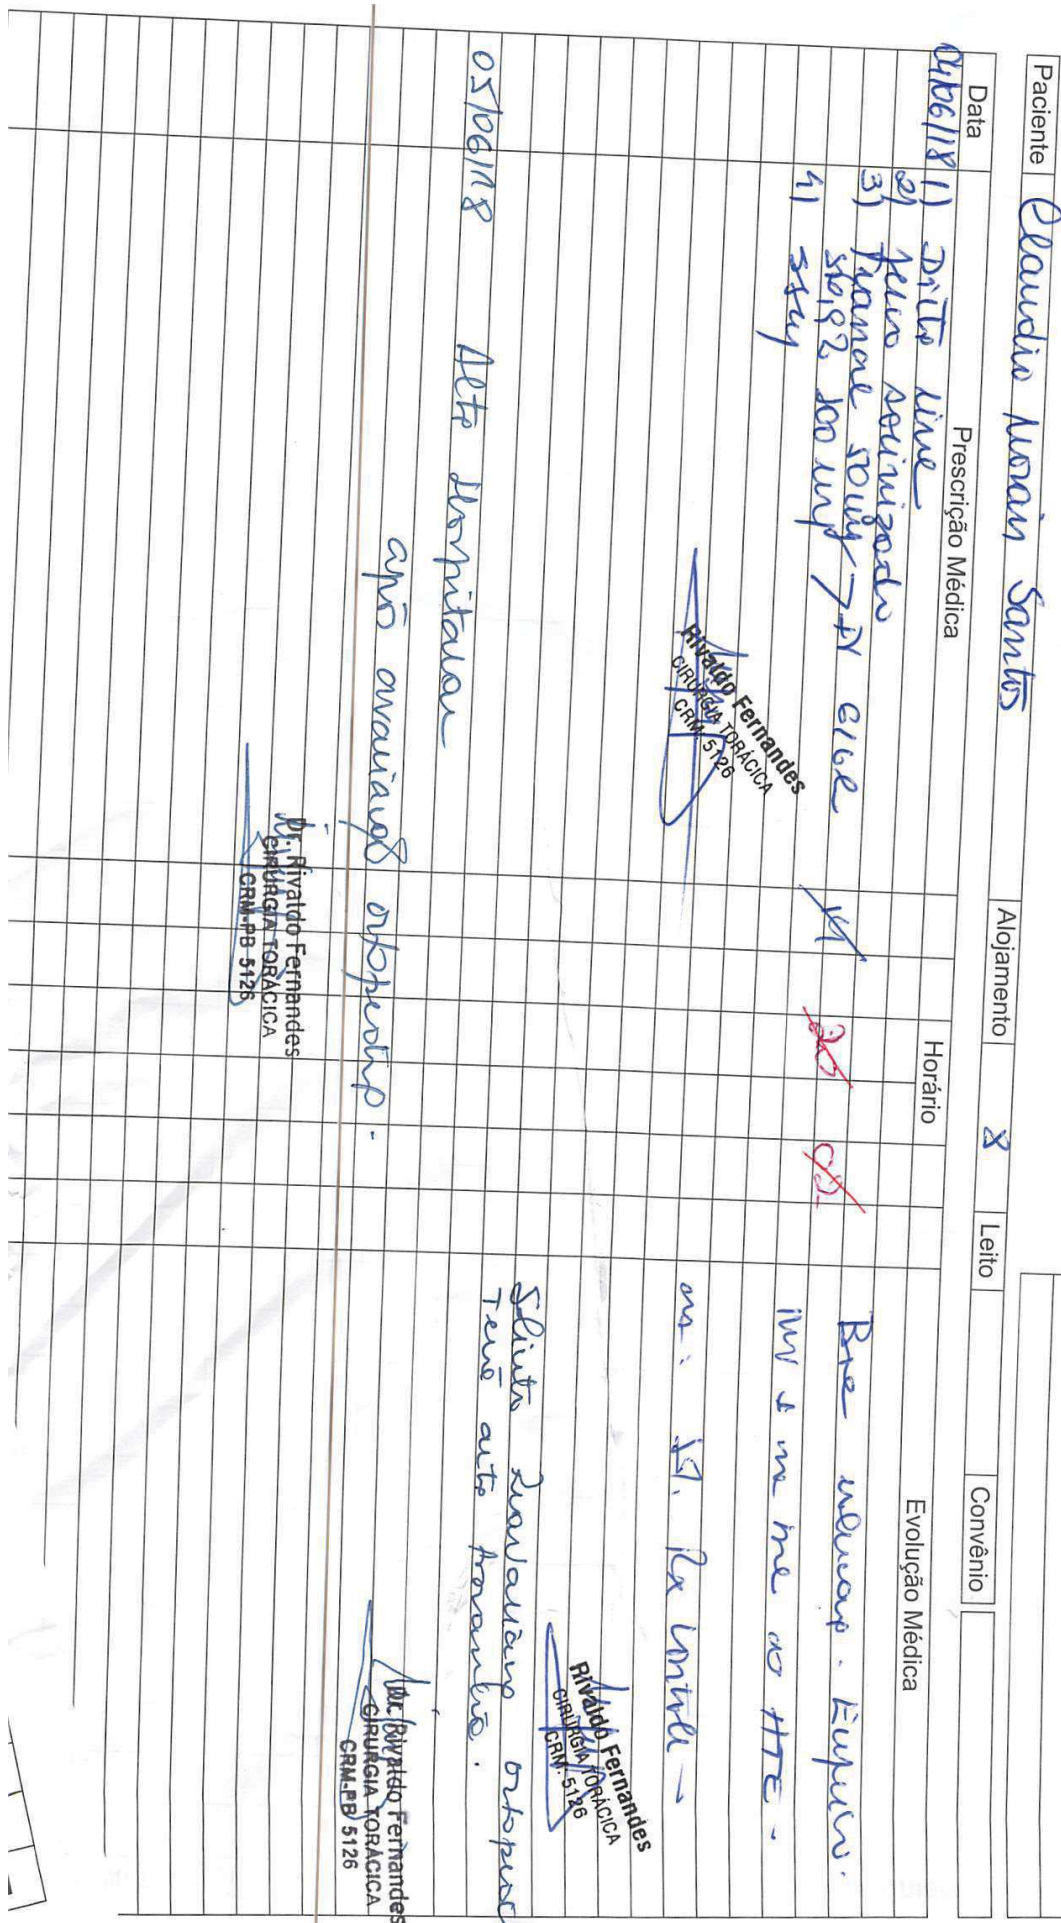 Paciente Claudio Morais Santos Alojamento 8 Leito Convênio
Data Prescrição Médica Horário Evolução Médica
04/06/18 1) Dieta livre
2) Jelco salinizado
3) Tramal 50mg
SF0,9% 100 EV 8/8h 14 20 02
4) SSVV
Rivaldo Fernandes
CIRURGIA TORÁCICA
CRM. 5126
Boa evolução. Eupneico.
MV + no HTE.
Rx controle →
Rivaldo Fernandes
CIRURGIA TORÁCICA
CRM. 5126
05/06/18 Alta Hospitalar
após avaliação ortopedia.
Dr. Rivaldo Fernandes
CIRURGIA TORÁCICA
CRM-PB 5126
Solicito Reavaliação
Terá alta
Dr. Rivaldo Fernandes
CIRURGIA TORÁCICA
CRM-PB 5126